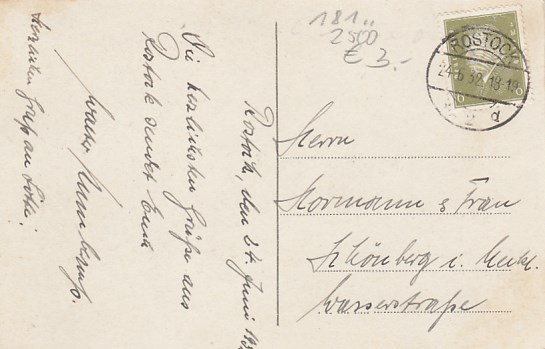 Rostock, den 24 Juni 193
Die herzlichsten Grüße aus
Rostock sendet Euch
Walter
Herzlichen Gruß an Lotte!
181
2500
€ 3.-
ROSTOCK
24.6.32.18-19
d
6
Herrn
Hormann & Frau
Schönberg i. Meckl.
Wasserstraße